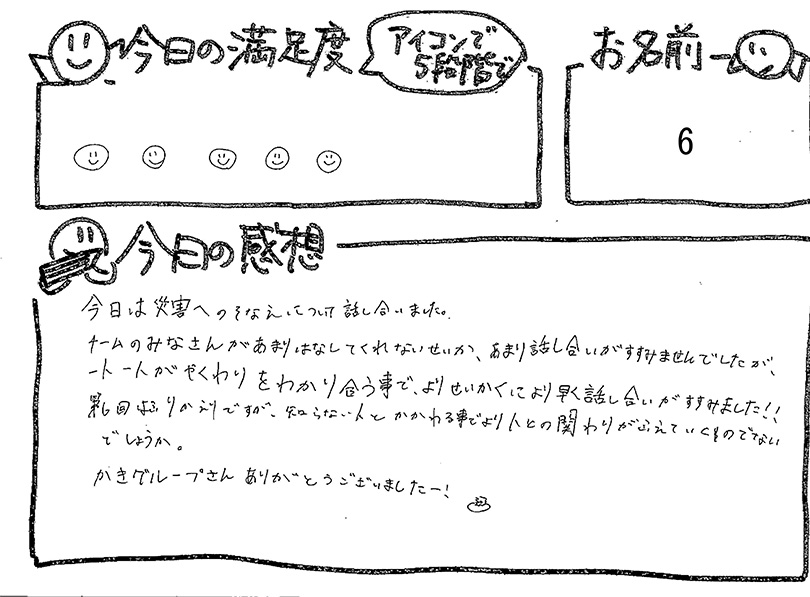 今日の満足度
アイコンで
5段階で
お名前
6
今日の感想
今日は災害へのそなえについて話し合いました。
チームのみなさんがあまりはなしてくれないせいか、あまり話し合いがすすみませんでしたが、
一人一人がやくわりをわかり合う事で、よりせいかくにより早く話し合いがすすみました!!
第6回ふりかえりですが、知らない人とかかわる事でより人との関わりがふえていくものでてない
でしょうか。
かきグループさんありがとうございましたー!